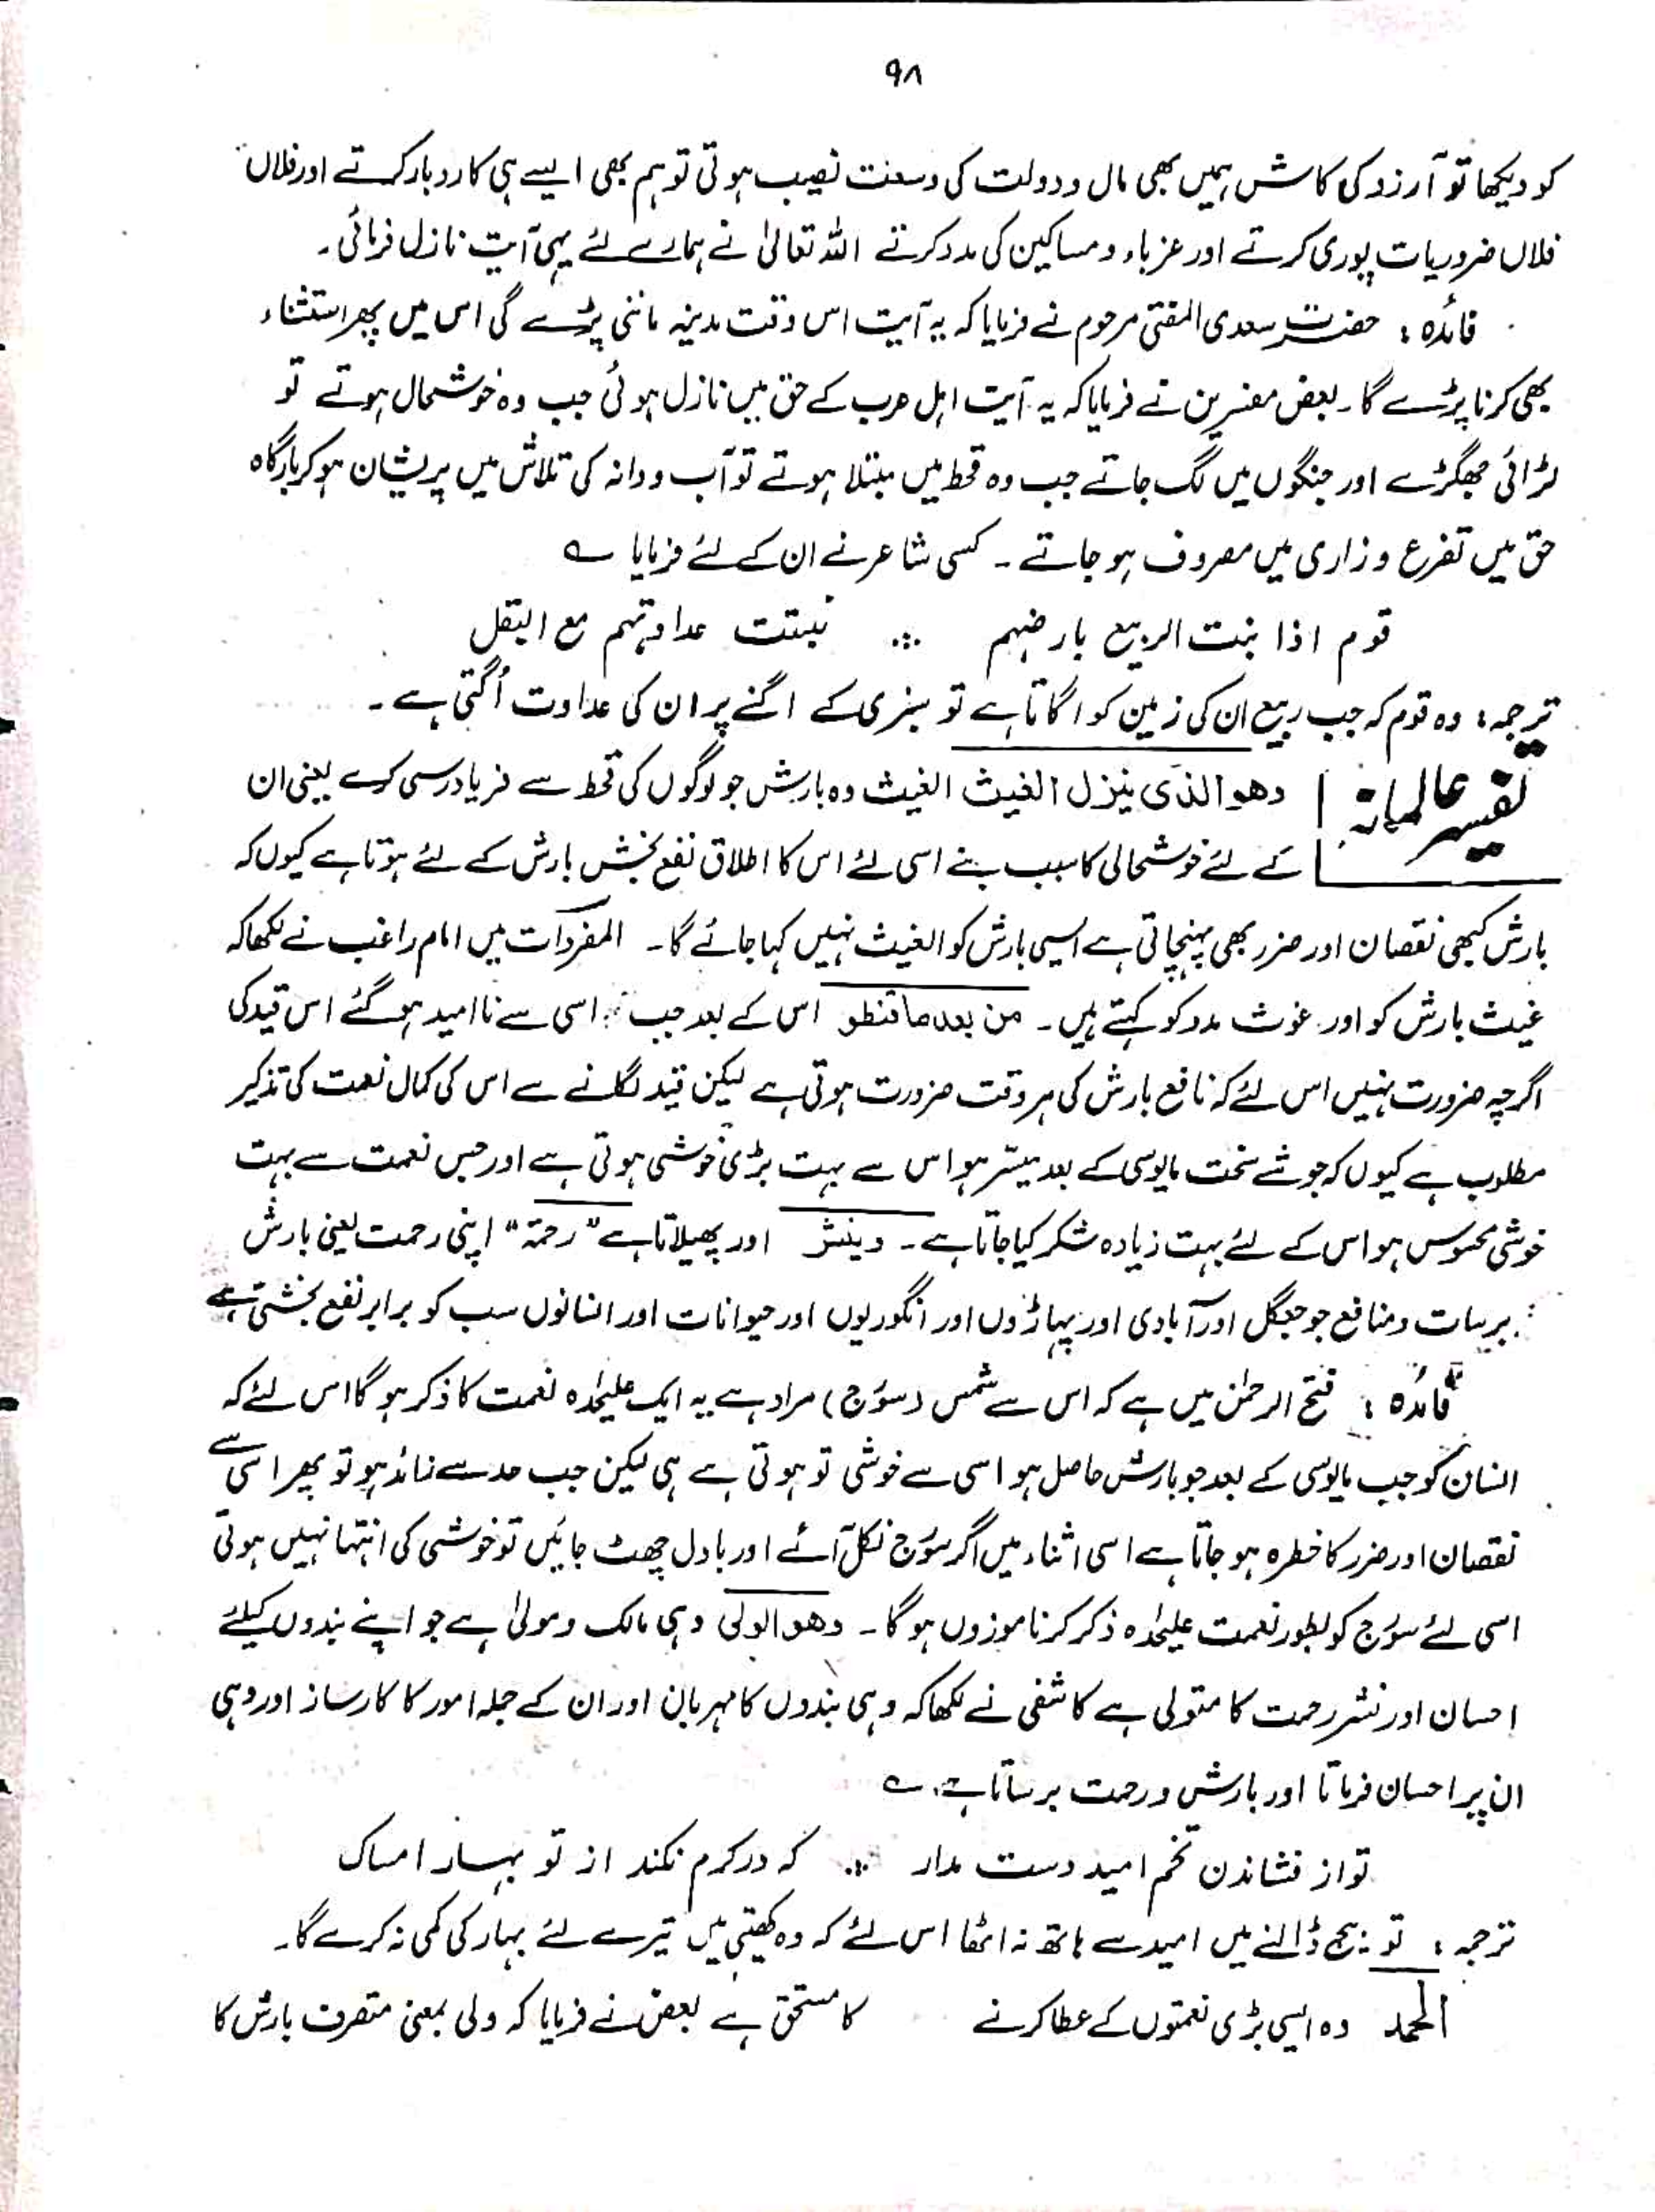 ۹۸
کو دیکھا تو آرزو کی کاش ہمیں بھی مال و دولت کی وسعت نصیب ہوتی تو ہم بھی ایسے ہی کاروبار کرتے اور فلاں
فلاں ضروریات پوری کرتے اور غرباء و مساکین کی مدد کرتے اللہ تعالیٰ نے ہمارے لئے یہی آیت نازل فرمائی۔
فائدہ : حضرت سعدی المفتی مرحوم نے فرمایا کہ یہ آیت اس وقت مدینہ ماننی پڑے گی اس میں پھر استثناء
بھی کرنا پڑے گا۔ بعض مفسرین نے فرمایا کہ یہ آیت اہل عرب کے حق میں نازل ہوئی جب وہ خوشحال ہوتے تو
لڑائی جھگڑے اور جنگوں میں لگ جاتے جب وہ قحط میں مبتلا ہوتے تو آب و دانہ کی تلاش میں پریشان ہو کر بارگاہ
حق میں تضرع وزاری میں مصروف ہو جاتے ۔ کسی شاعر نے ان کے لئے فرمایا ؎
قوم اذا نبت الربیع بارضہم ∴ نبتت عداوتہم مع البقل
ترجمہ : وہ قوم کہ جب ربیع ان کی زمین کو اگاتا ہے تو سبزی کے اگنے پر ان کی عداوت اُگتی ہے ۔
تفسیر عالمانہ
وھو الذی ینزل الغیث الغیث وہ بارش جو لوگوں کی قحط سے فریاد رسی کرے یعنی ان
کے لئے خوشحالی کا سبب بنے اسی لئے اس کا اطلاق نفع بخش بارش کے لئے ہوتا ہے کیوں کہ
بارش کبھی نقصان اور ضرر بھی پہنچاتی ہے ایسی بارش کو الغیث نہیں کہا جائے گا۔ المفردات میں امام راغب نے لکھا کہ
غیث بارش کو اور غوث مدد کو کہتے ہیں ۔ من بعد ما قنطو اس کے بعد جب اسی سے ناامید ہو گئے اس قید کی
اگرچہ ضرورت نہیں اس لئے کہ نافع بارش کی ہر وقت ضرورت ہوتی ہے لیکن قید لگانے سے اس کی کمال نعمت کی تذکیر
مطلوب ہے کیوں کہ جو شے سخت مایوسی کے بعد میسّر ہو اس سے بہت بڑی خوشی ہوتی ہے اور جس نعمت سے بہت
خوشی محسوس ہو اس کے لئے بہت زیادہ شکر کیا جاتا ہے ۔ وینشر اور پھیلاتا ہے "رحمتہ" اپنی رحمت یعنی بارش
برسات و منافع جو جنگل اور آبادی اور پہاڑوں اور انگوریوں اور حیوانات اور انسانوں سب کو برابر نفع بخشتی ہے
فائدہ : فتح الرحمٰن میں ہے کہ اس سے شمس (سورج) مراد ہے یہ ایک علیٰحدہ نعمت کا ذکر ہو گا اس لئے کہ
انسان کو جب مایوسی کے بعد جو بارش حاصل ہو اسی سے خوشی تو ہوتی ہے ہی لیکن جب حد سے زائد ہو تو پھر اسی سے
نقصان اور ضرر کا خطرہ ہو جاتا ہے اسی اثناء میں اگر سورج نکل آئے اور بادل چھٹ جائیں تو خوشی کی انتہا نہیں ہوتی
اسی لئے سورج کو بطور نعمت علیٰحدہ ذکر کرنا موزوں ہو گا ۔ وھو الولی وہی مالک و مولیٰ ہے جو اپنے بندوں کیلئے
احسان اور نشر رحمت کا متولی ہے کاشفی نے لکھا کہ وہی بندوں کا مہربان اور ان کے جملہ امور کا کارساز اور وہی
ان پر احسان فرماتا اور بارش و رحمت برساتا ہے ۔ ؎
تو از فشاندن تخم امید دست مدار ∴ کہ در کرم نکند از تو بہار امساک
ترجمہ : تو بیج ڈالنے میں امید سے ہاتھ نہ اٹھا اس لئے کہ وہ کھیتی میں تیرے لئے بہار کی کمی نہ کرے گا۔
الحمد وہ ایسی بڑی نعمتوں کے عطا کرنے کا مستحق ہے بعض نے فرمایا کہ ولی بمعنی متصرف بارش کا